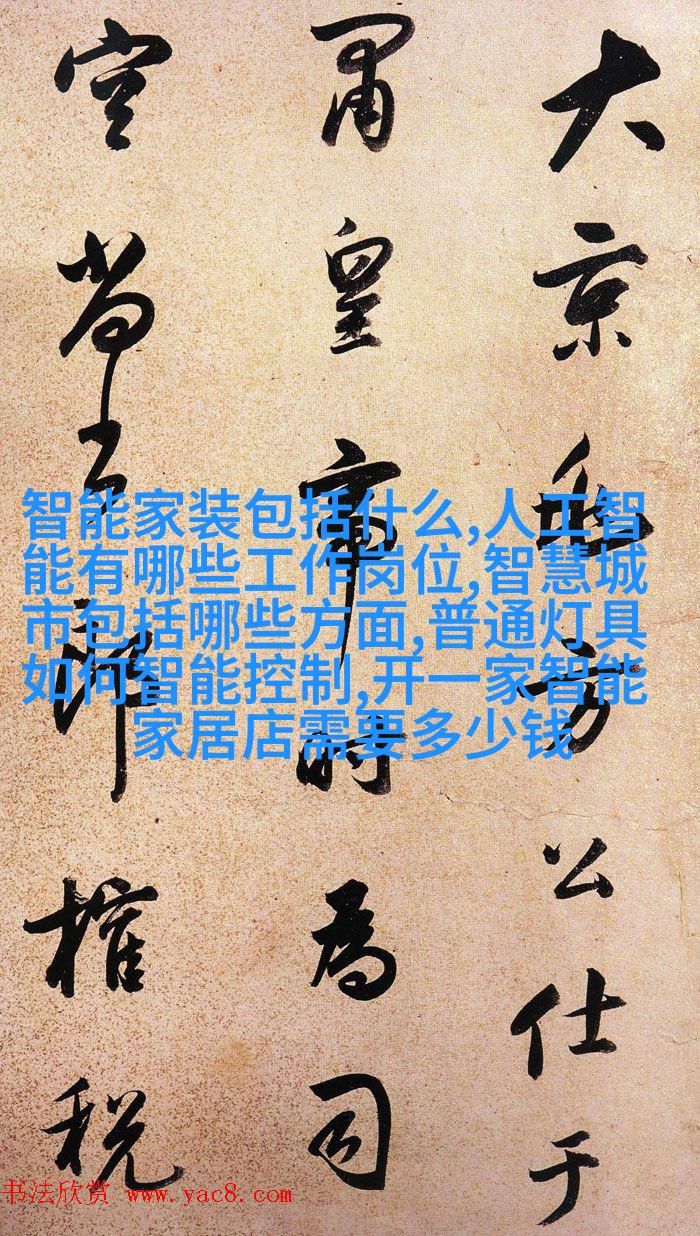 大京兆方公仕于
肅皇帝时為司
空尚书郎榷税
智能家装包括什么,人工智
能有哪些工作岗位,智慧城
市包括哪些方面,普通灯具
如何智能控制,开一家智能
家居店需要多少钱
书法欣赏 www.yac8.com